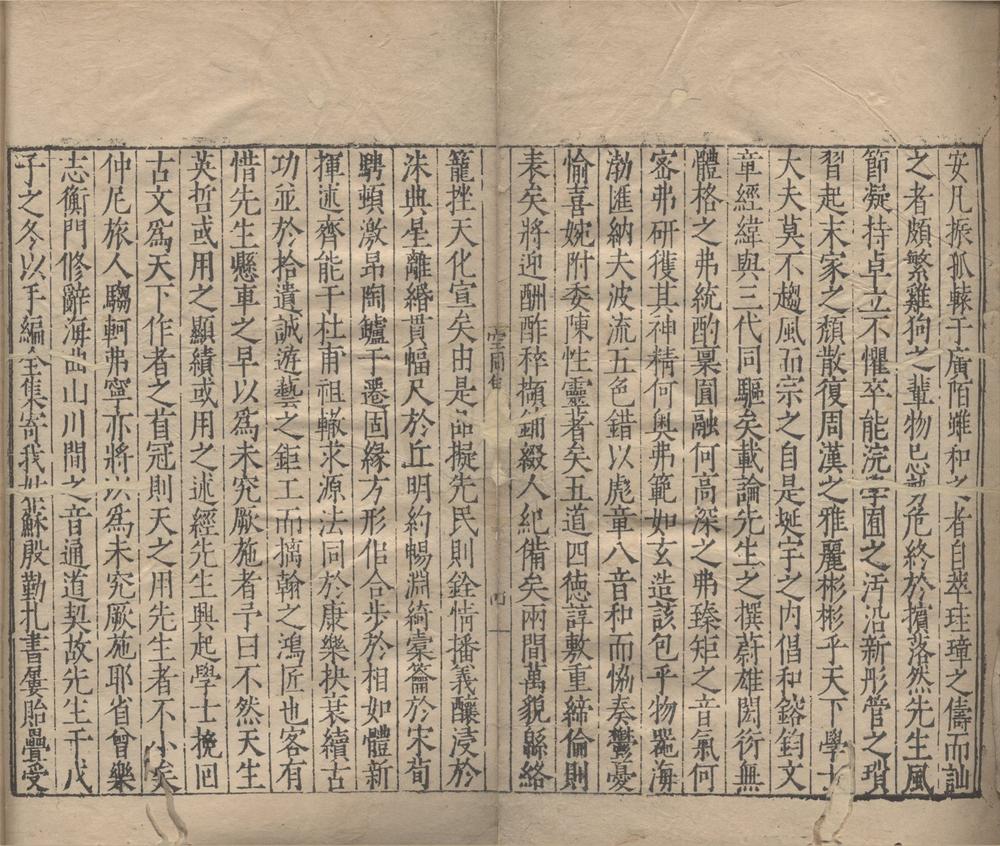 安凡振孤轅于廣陌雖和之者自萃珪璋之儔而訕
之者頗繁雞狗之輩物忌勢危終於擯落然先生風
節凝持卓立不懼卒能浣宇囿之汚沿新彤管之瑣
習起末家之頹散復周漢之雅麗彬彬乎天下學士
大夫莫不趨風而宗之自是埏宇之內倡和鎔鈞文
章經緯與三代同驅矣載論先生之撰蔚雄閎衍無
體格之弗統酌稟圓融何高深之弗臻矩之音氣何
密弗研獲其神精何奧弗範如玄造該包乎物噐海
渤匯納夫波流五色錯以彪章八音和而恊奏鬱憂
愉喜婉附委陳性靈著矣五道四德諄敷重締倫則
表矣將迎酬酢稡擷鈿綴人紀備矣兩間萬貌綿絡
空同集
四
籠挫天化宣矣由是品擬先民則銓情播義釀浸於
洙典呈離緡貫幅尺於丘明約暢淵綺橐籥於宋荀
騁頓激昂陶鑪于遷固緣方形侔合步於相如體新
揮述齊能于杜甫祖轍求源法同於康樂抉袠續古
功並於拾遺誠遊藝之鉅工而摛翰之鴻匠也客有
惜先生懸車之早以爲未究厥施者予曰不然天生
英哲或用之顯績或用之述經先生興起學士挽囘
古文爲天下作者之首冠則天之用先生者不小矣
仲尼旅人騶軻弗寧亦將以爲未究厥施耶省曾樂
志衡門修辭海曲山川間之音通道契故先生于戊
子之冬以手編全集寄我姑蘇殷勤扎書屢貽疊受